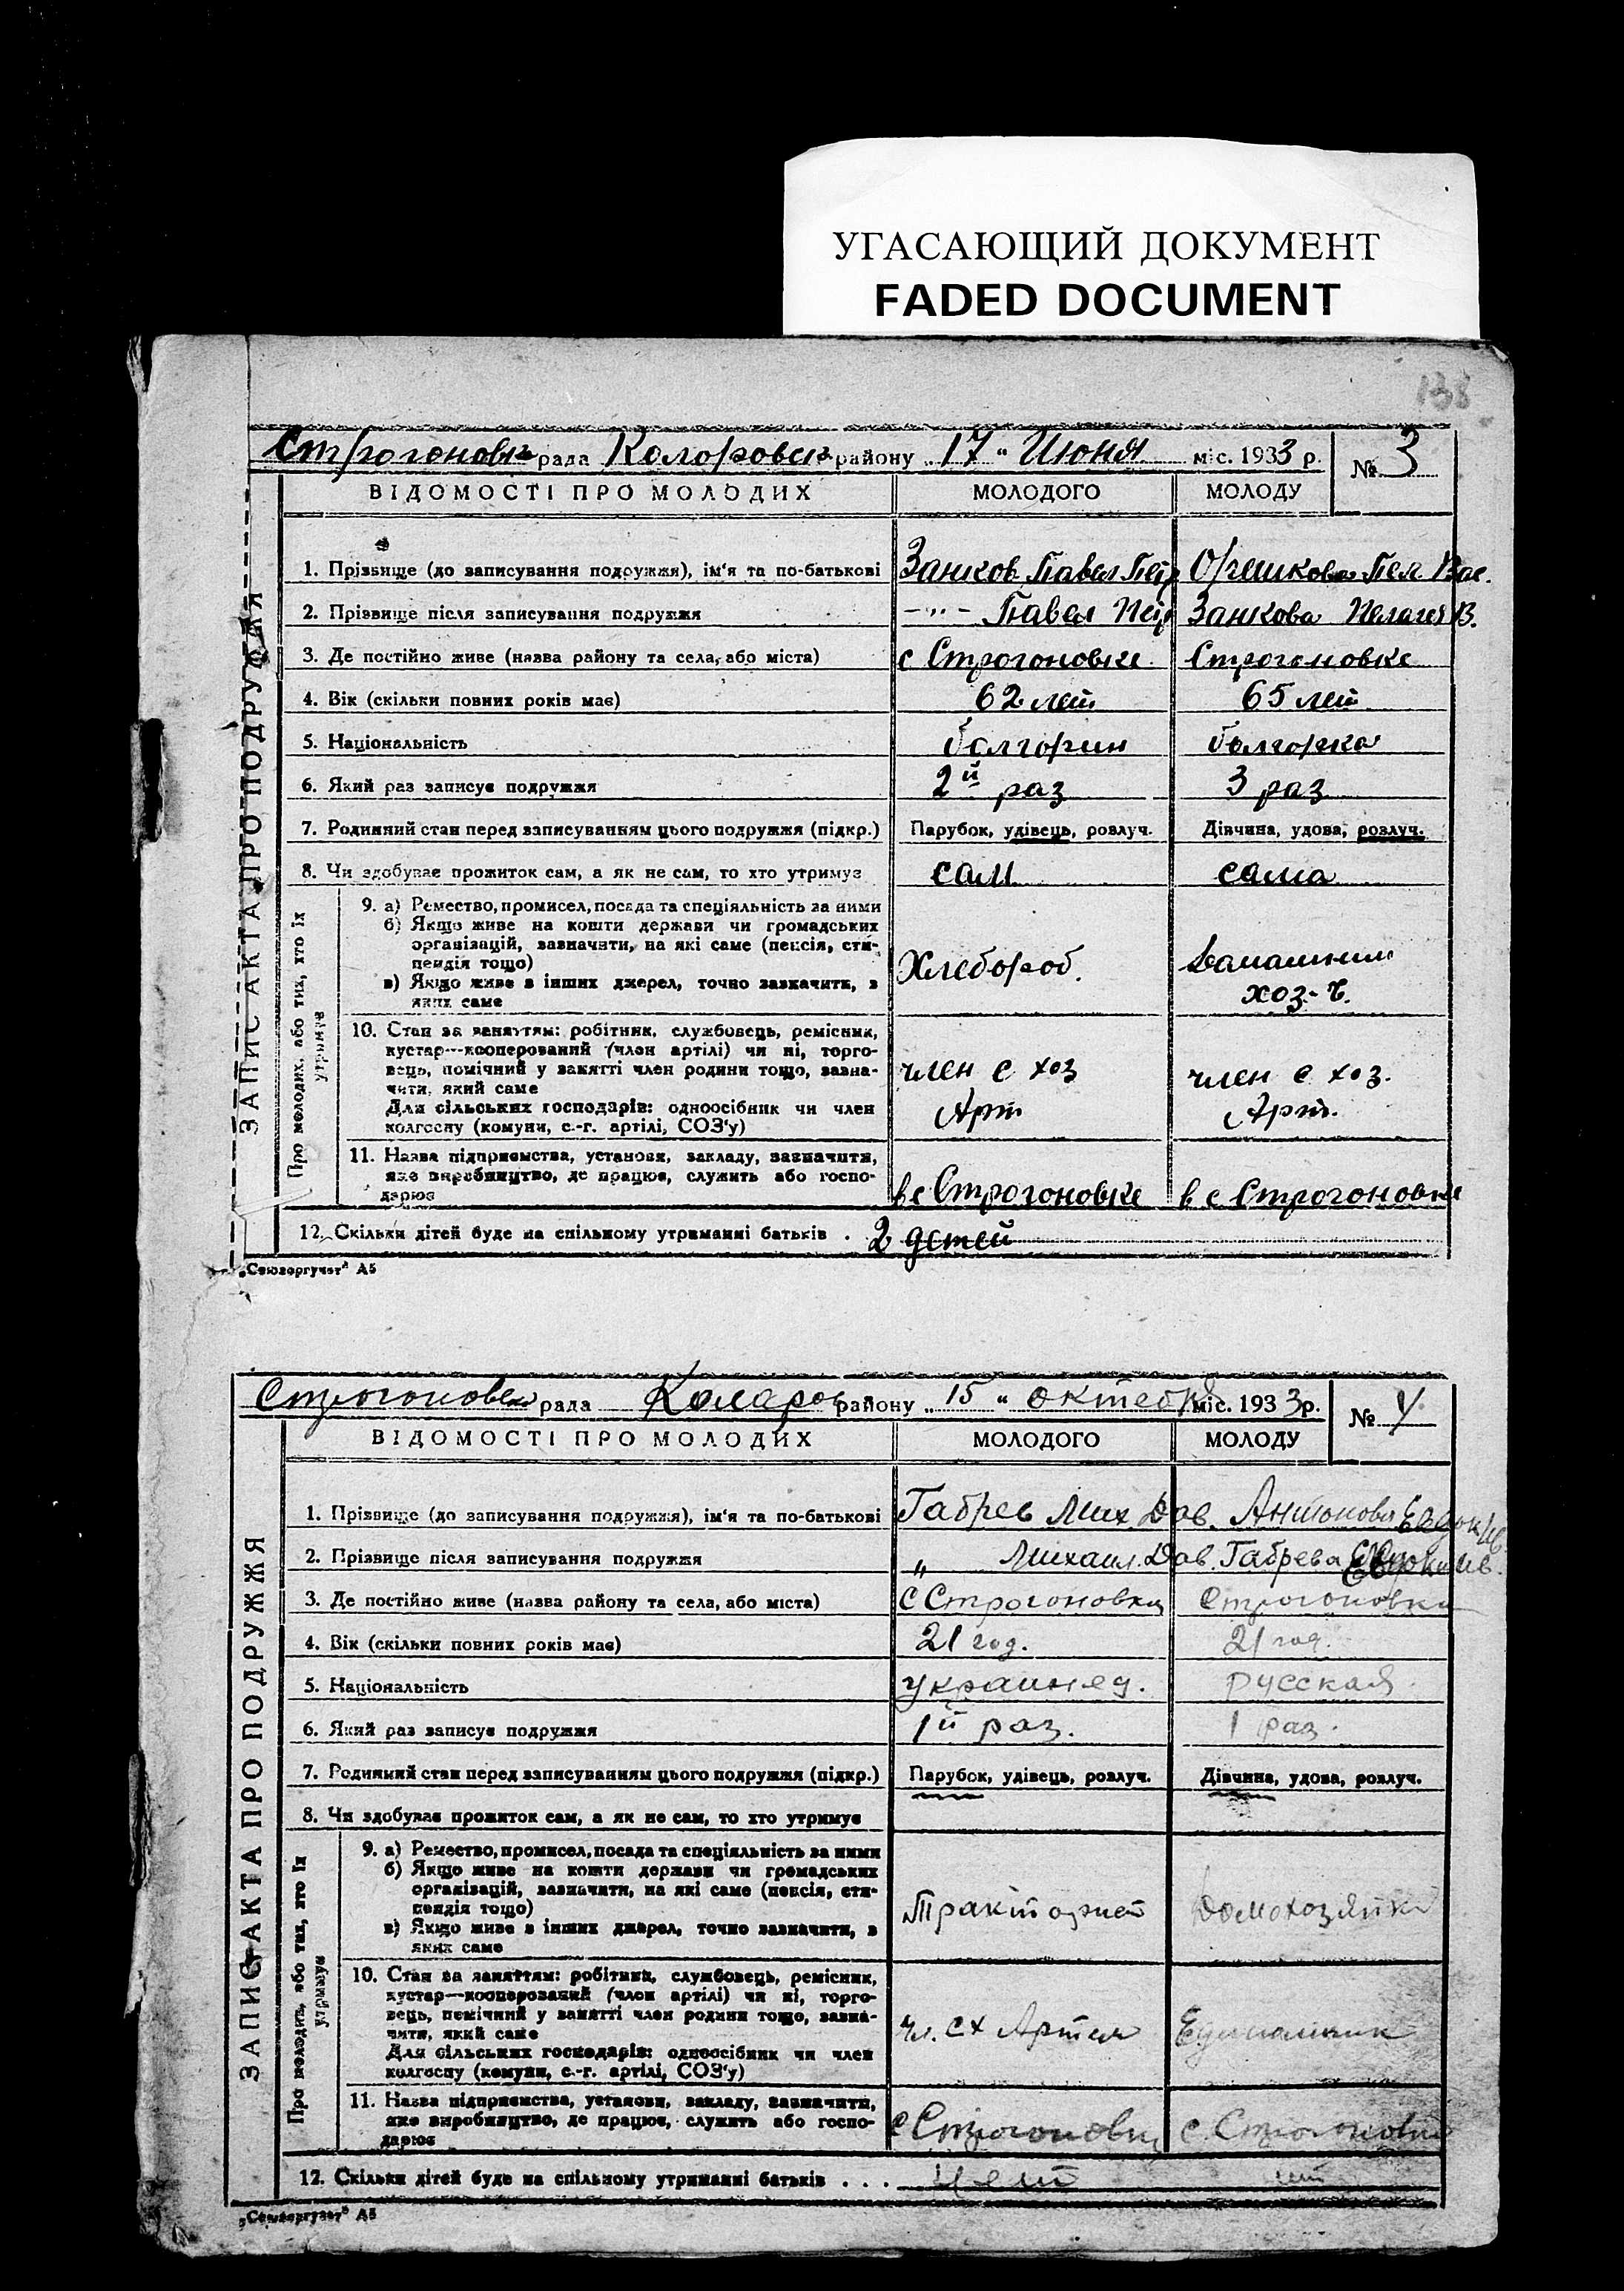 УГАСАЮЩИЙ ДОКУМЕНТ
FADED DOCUMENT
138
Строгоновк рада Колоровск району „17“ Июня міс. 1933 р. № 3
ВІДОМОСТІ ПРО МОЛОДИХ МОЛОДОГО МОЛОДУ
ЗАПИС АКТА ПРО ПОДРУЖЖЯ
1. Прізвище (до записування подружжя), ім'я та по-батькові Занков Павел Петр Орешкова Пел. Вас.
2. Прізвище після записування подружжя –„– Павел Петр Занкова Пелагея В.
3. Де постійно живе (назва району та села, або міста) с Строгоновке Строгоновке
4. Вік (скільки повних років має) 62 лет 65 лет
5. Національність болгорин болгорка
6. Який раз записує подружжя 2й раз 3 раз
7. Родинний стан перед записуванням цього подружжя (підкр.) Парубок, удівець, розлуч. Дівчина, удова, розлуч.
8. Чи здобуває прожиток сам, а як не сам, то хто утримує сам сама
Про молодих, або тих, хто їх утримує
9. а) Ремество, промисел, посада та спеціяльність за ними
б) Якщо живе на кошти держави чи громадських
організацій, зазначити, на які саме (пенсія, сти-
пендія тощо) Хлебороб.
в) Якщо живе з інших джерел, точно зазначити, з
яких саме хоз-
10. Стан за заняттям: робітник, службовець, ремісник,
кустар—кооперований (член артілі) чи ні, торго-
вець, помічний у занятті член родини тощо, зазна- член с хоз член с хоз.
чити, який саме
Для сільських господарів: одноосібник чи член Арт Арт.
колгоспу (комуни, с.-г. артілі, СОЗ'у)
11. Назва підприємства, установи, закладу, зазначити,
яке виробництво, де працює, служить або госпо-
дарює в с Строгоновке в с Строгоновке
12. Скільки дітей буде на спільному утриманні батьків . 2 детей
„Союзоргучет“ А5
Строгоновск рада Коларов району „15“ октебр міс. 1933 р. № 4
ВІДОМОСТІ ПРО МОЛОДИХ МОЛОДОГО МОЛОДУ
ЗАПИС АКТА ПРО ПОДРУЖЖЯ
1. Прізвище (до записування подружжя), ім'я та по-батькові Габрев Мих. Дав. Антонова Евдок Ив
2. Прізвище після записування подружжя „ Михаил. Дав. Габрева Ив.
3. Де постійно живе (назва району та села, або міста) с Строгоновки Строгоновки
4. Вік (скільки повних років має) 21 год. 21 год.
5. Національність украинец. русская
6. Який раз записує подружжя 1й раз. 1 раз.
7. Родинний стан перед записуванням цього подружжя (підкр.) Парубок, удівець, розлуч. Дівчина, удова, розлуч.
8. Чи здобуває прожиток сам, а як не сам, то хто утримує
Про молодих, або тих, хто їх утримує
9. а) Ремество, промисел, посада та спеціяльність за ними
б) Якщо живе на кошти держави чи громадських
організацій, зазначити, на які саме (пенсія, сти-
пендія тощо) Тракторист Домохозяйка
в) Якщо живе з інших джерел, точно зазначити, з
яких саме
10. Стан за заняттям: робітник, службовець, ремісник,
кустар—кооперований (член артілі) чи ні, торго-
вець, помічний у занятті член родини тощо, зазна-
чити, який саме чл. сх Артели Единолични
Для сільських господарів: одноосібник чи член
колгоспу (комуни, с.-г. артілі, СОЗ'у)
11. Назва підприємства, установи, закладу, зазначити,
яке виробництво, де працює, служить або госпо-
дарює с Строгоновки с. Строгоновки
12. Скільки дітей буде на спільному утриманні батьків . . . нет нет
„Союзоргучет“ А5